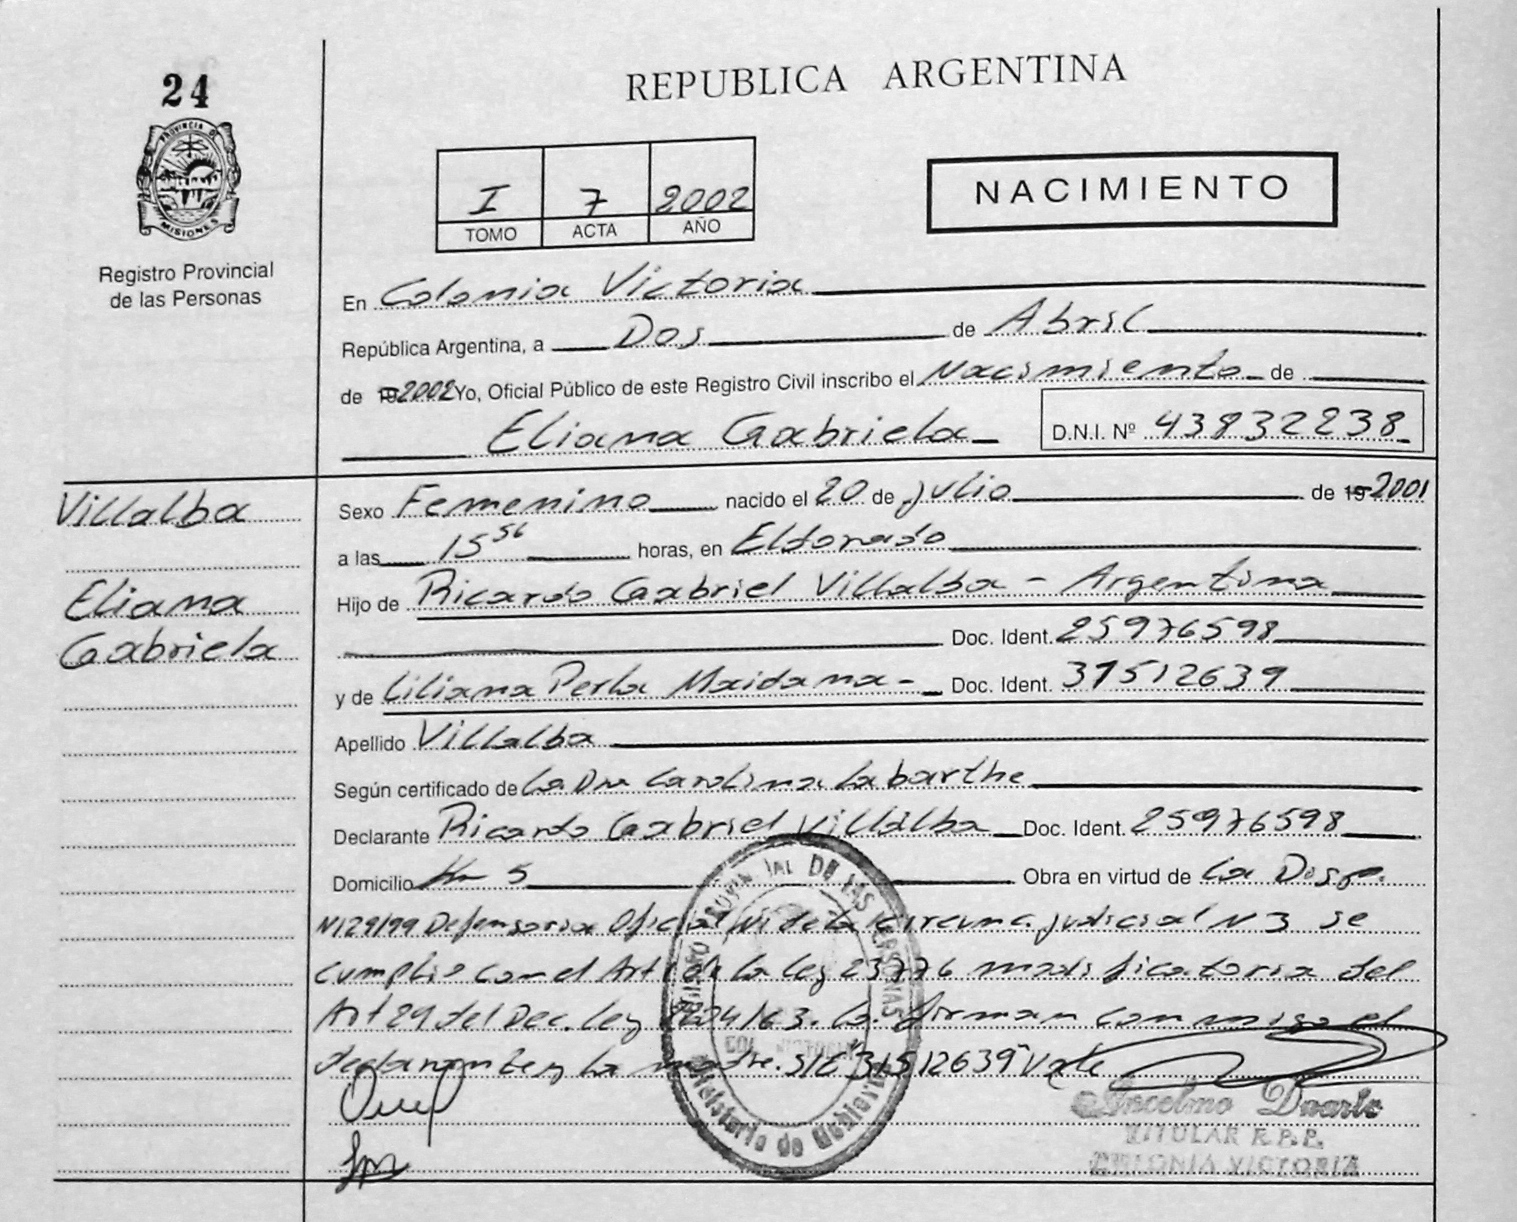 24
PROVINCIA DE
MISIONES
Registro Provincial
de las Personas
REPUBLICA ARGENTINA
I 7 2002
TOMO ACTA AÑO
NACIMIENTO
En Colonia Victoria
República Argentina, a Dos de Abril
de 19 2002 Yo, Oficial Público de este Registro Civil inscribo el Nacimiento de
Eliana Gabriela D.N.I. Nº 43832238
Villalba
Eliana
Gabriela
Sexo Femenino nacido el 20 de julio de 19 2001
a las 15 56 horas, en Eldorado
Hijo de Ricardo Gabriel Villalba - Argentina
Doc. Ident. 25976598
y de Liliana Perla Maidana - Doc. Ident. 37512639
Apellido Villalba
Según certificado de La Dra Carolina Labarthe
Declarante Ricardo Gabriel Villalba Doc. Ident. 25976598
Domicilio Km 5 Obra en virtud de La Disp.
N129/99 Defensoria Oficial de la Circunc. judicial N 3 se
cumplio con el Art de la Ley 23776 modificatoria del
Art 29 del Dec. Ley 8204/63. La firman conmigo el
declarante y la madre. S/E 31512639 Vale
DE LAS PERSONAS
Ministerio de Gobierno
Ancelmo Duarte
TITULAR R.P.P.
COLONIA VICTORIA